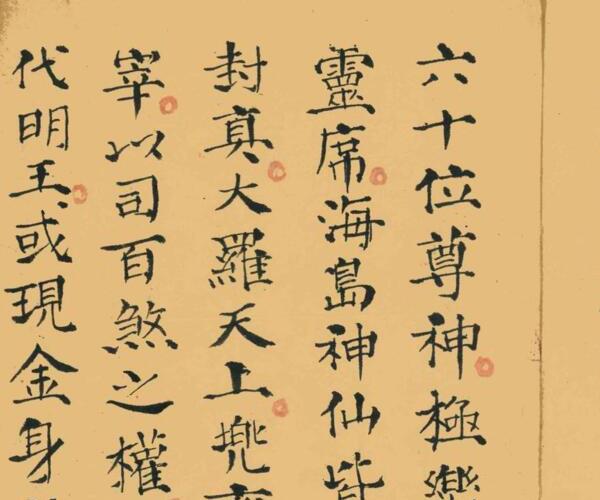 六十位尊神極樂
靈席海島神仙皆
封真大羅天上兜
宰以司百煞之權
代明王或現金身